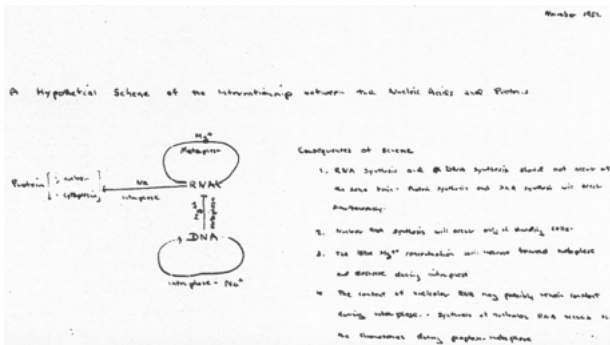 November 1952
A Hypothetical Scheme of the Interrelationship between the Nucleic Acids and Proteins
Mg++
Metaphase
Protein
nuclear
cytoplasm
Na
interphase
RNA
Mg++
metaphase
DNA
interphase - Na+
Consequences of Scheme
1. RNA synthesis and DNA synthesis should not occur at
the same time. Protein synthesis and DNA synthesis will occur
simultaneously.
2. Nuclear RNA synthesis will occur only in dividing cells.
3. The Mg++ concentration will increase toward metaphase
and decrease during interphase
4. The content of nucleolar RNA may possibly remain constant
during interphase. - Synthesis of nucleolar RNA occurs in
the chromosomes during prophase-metaphase